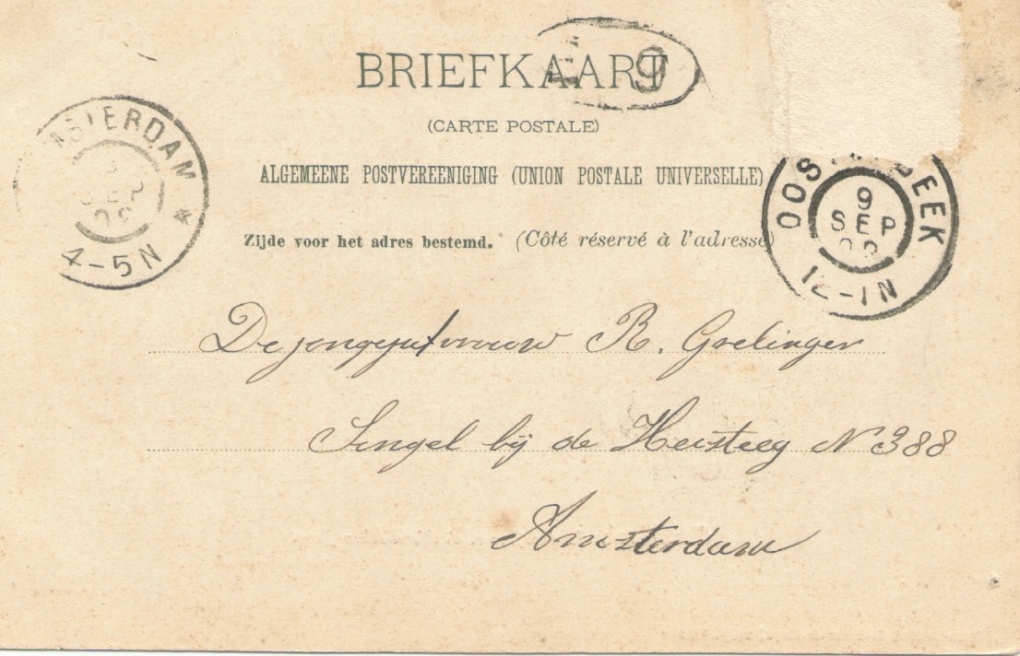 BRIEFKAART
9
(CARTE POSTALE)
ALGEMEENE POSTVEREENIGING (UNION POSTALE UNIVERSELLE)
Zijde voor het adres bestemd. (Côté réservé à l'adresse)
AMSTERDAM
4-5N
OOSTERBEEK
9
SEP
12-1N
De jongejufvrouw R. Grelinger
Singel bij de Heisteeg N 388
Amsterdam